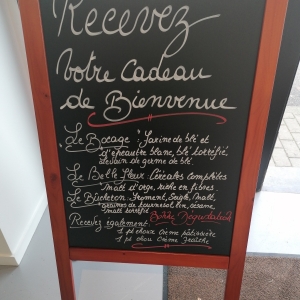 Recevez
votre cadeau
de Bienvenue
Le Bocage : Farine de blé et
d'épeautre blanc, blé torréfié,
levain de germe de blé.
La Belle Fleur : Céréales complètes
malt d'orge, riche en fibres.
Le Bûcheron : Froment, Seigle, Malt,
graines de tournesol, lin, sésame,
malt torréfié
Bonne Dégustation
Recevez également :
1 pt choux crème pâtissière
1 pt chou crème fraîche